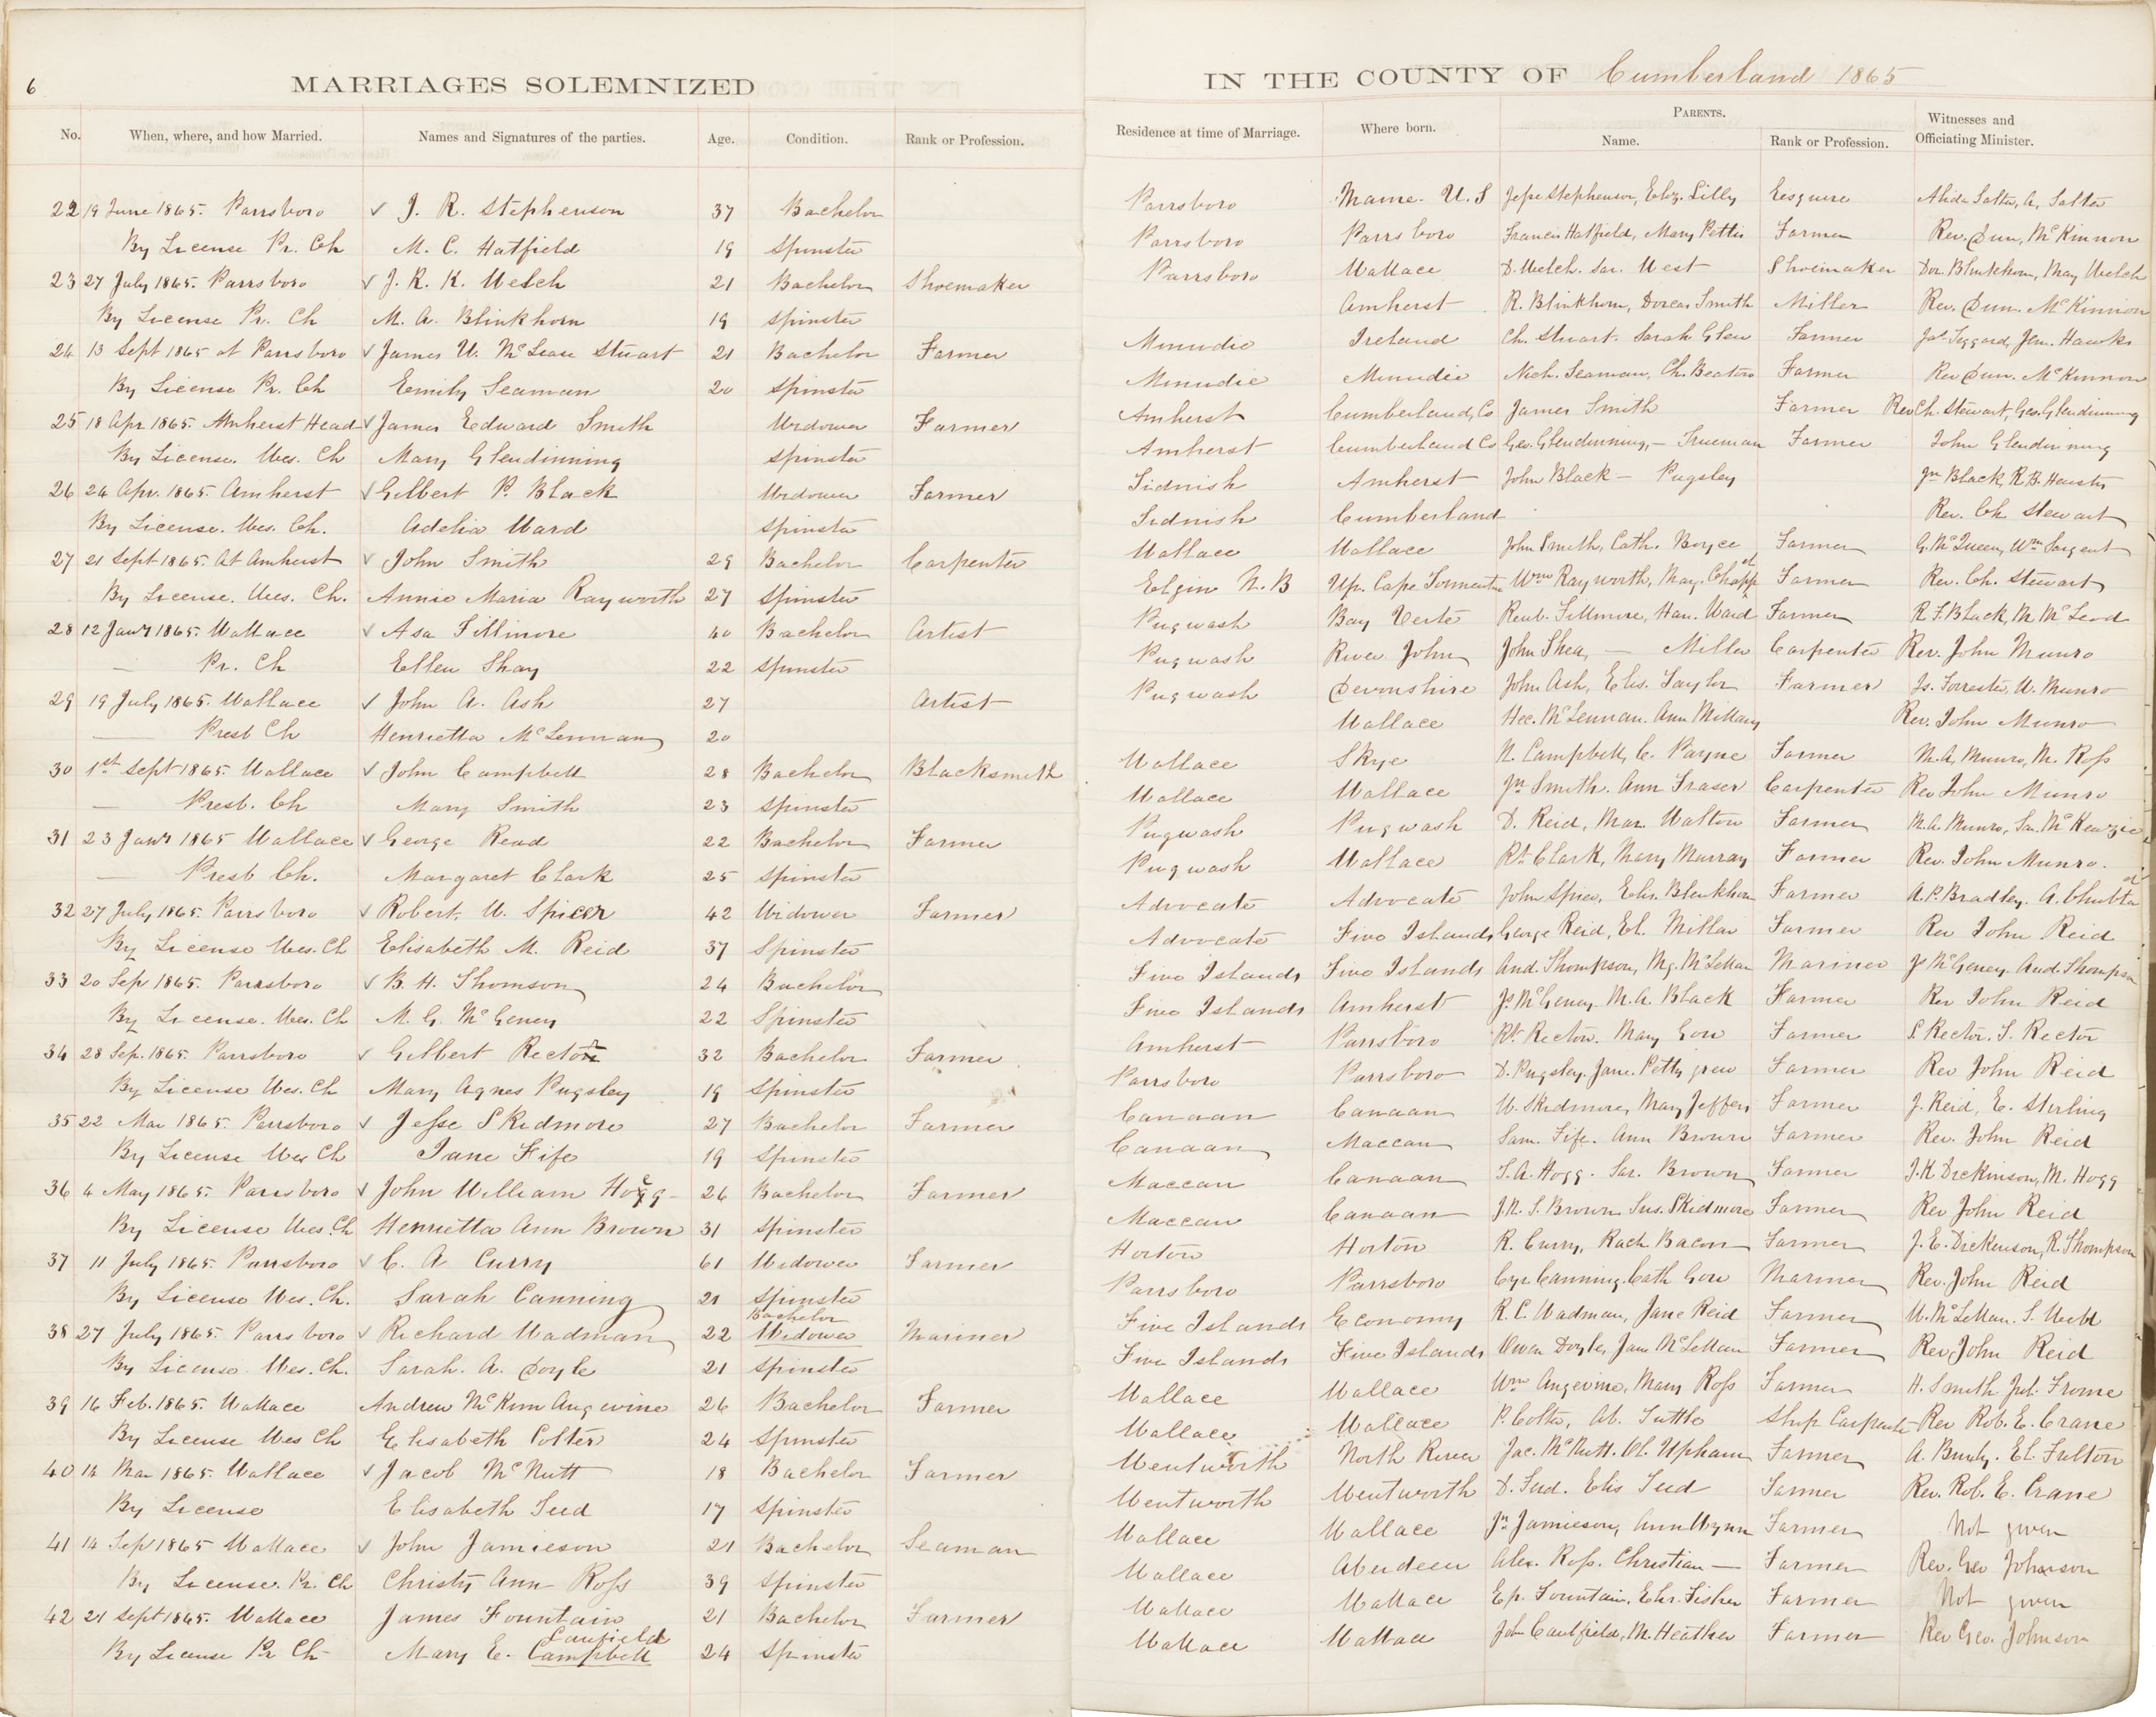 6
MARRIAGES SOLEMNIZED IN THE COUNTY OF Cumberland 1865
No. When, where, and how Married. Names and Signatures of the parties. Age. Condition. Rank or Profession. Residence at time of Marriage. Where born. PARENTS. Name. Rank or Profession. Witnesses and Officiating Minister.
22 19 June 1865. Parrsboro ✓ J. R. Stephenson 37 Bachelor Parrsboro Maine. U. S Jesse Stephenson, Eliz. Lilly Esquire Alida Salter, A. Salter
By License Pr. Ch M. C. Hatfield 19 Spinster Parrsboro Parrsboro Francis Hatfield, Mary Pettis Farmer Rev. Dun. McKinnon
23 27 July 1865. Parrsboro ✓ J. R. K. Welch 21 Bachelor Shoemaker Parrsboro Wallace D. Welch. Sar. West Shoemaker Dor. Blinkhorn, May Welch
By License Pr. Ch M. A. Blinkhorn 19 Spinster Amherst R. Blinkhorn, Dorcas Smith Miller Rev. Dun. McKinnon
24 13 Sept 1865 at Parrsboro ✓ James W. McLean Stuart 21 Bachelor Farmer Minudie Ireland Ch. Stuart. Sarah Glen Farmer Jas. Jen. Hawks
By License Pr. Ch Emily Seaman 20 Spinster Minudie Minudie Nich. Seaman, Ch. Beaton Farmer Rev Dun. McKinnon
25 18 Apr 1865. Amherst Head ✓ James Edward Smith Widower Farmer Amherst Cumberland, Co James Smith Farmer Rev Ch. Stewart, Geo. Glendinning
By License. Wes. Ch Mary Glendinning Spinster Amherst Cumberland Co Geo. Glendinning, — Trueman Farmer John Glendinning
26 24 Apr. 1865. Amherst ✓ Gilbert P. Black Widower Farmer Tidnish Amherst John Black — Pugsley Jn Black, R. B. Heustis
By License. Wes. Ch. Adelia Ward Spinster Tidnish Cumberland Rev. Ch Stewart
27 21 Sept 1865. At Amherst ✓ John Smith 29 Bachelor Carpenter Wallace Wallace John Smith, Cath. Boyce Farmer G. McQueen, Wm Sargent
By License. Wes. Ch. Annie Maria Rayworth 27 Spinster Elgin N. B Up. Cape Tormentine Wm Rayworth, May. Chappel Farmer Rev. Ch. Stewart
28 12 Jany 1865. Wallace ✓ Asa Fillmore 40 Bachelor Artist Pugwash Bay Verte Reub. Fillmore, Han. Ward Farmer R. F. Black, M McLeod
— Pr. Ch Ellen Shay 22 Spinster Pugwash River John John Shea, — Miller Carpenter Rev. John Munro
29 19 July 1865. Wallace ✓ John A. Ash 27 Artist Pugwash Devonshire John Ash, Elis. Taylor Farmer Js. Forrester, W. Munro
— Presb Ch Henrietta McLennan 20 Wallace Hec. McLennan. Ann Rev. John Munro
30 1st Sept 1865. Wallace ✓ John Campbell 28 Bachelor Blacksmith Wallace Skye N. Campbell, C. Payne Farmer M. A. Munro, M. Ross
— Presb. Ch Mary Smith 23 Spinster Wallace Wallace Jn Smith. Ann Fraser Carpenter Rev John Munro
31 23 Jany 1865 Wallace ✓ George Read 22 Bachelor Farmer Pugwash Pugwash D. Reid, Mar. Walton Farmer M. A. Munro, Sa. McKenzie
— Presb Ch. Margaret Clark 25 Spinster Pugwash Wallace Rt. Clark, Mary Murray Farmer Rev. John Munro.
32 27 July 1865. Parrsboro ✓ Robert. W. Spicer 42 Widower Farmer Advocate Advocate John Spicer, Elis. Blenkhorn Farmer A. P. Bradley. A. Chubta
By License Wes. Ch Elisabeth M. Reid 37 Spinster Advocate Five Islands George Reid, El. Millar Farmer Rev John Reid
33 20 Sep 1865. Parrsboro ✓ B. H. Thomson 24 Bachelor Five Islands Five Islands And. Thompson, Mg. McLellan Mariner Js McGeney. And. Thompson
By License. Wes. Ch M. G. McGeney 22 Spinster Five Islands Amherst Js. McGeney. M. A. Black Farmer Rev John Reid
34 28 Sep. 1865. Parrsboro ✓ Gilbert Rector 32 Bachelor Farmer Amherst Parrsboro Rt. Rector. Mary Gow Farmer S. Rector. S. Rector
By License Wes. Ch Mary Agnes Pugsley 19 Spinster Parrsboro Parrsboro D. Pugsley. Jane. Pettigrew Farmer Rev John Reid
35 22 Mar 1865. Parrsboro ✓ Jesse Skidmore 27 Bachelor Farmer Canaan Canaan W. Skidmore, Mary Jeffers Farmer J. Reid, E. Stirling
By License Wes Ch Jane Fife 19 Spinster Canaan Maccan Sam. Fife. Ann Brown Farmer Rev. John Reid
36 4 May 1865. Parrsboro ✓ John William Hogg 26 Bachelor Farmer Maccan Canaan T. A. Hogg. Sar. Brown Farmer J. K Dickinson, M. Hogg
By License Wes. Ch Henrietta Ann Brown 31 Spinster Maccan Canaan J. N. S. Brown Sus. Skidmore Farmer Rev John Reid
37 11 July 1865. Parrsboro ✓ C. A Curry 61 Widower Farmer Horton Horton R. Curry, Rach Bacon Farmer J. E. Dickenson, R. Thompson
By License Wes. Ch. Sarah Canning 21 Spinster Parrsboro Parrsboro Cyr. Canning. Cath Gow Mariner Rev. John Reid
38 27 July 1865. Parrsboro ✓ Richard Wadman 22 Bachelor Widower Mariner Five Islands Economy R. C. Wadman, Jane Reid Farmer W. McLellan. S. Webb
By License. Wes. Ch. Sarah. A. Doyle 21 Spinster Five Islands Five Islands Owen Doyle, Jane McLellan Farmer Rev John Reid
39 16 Feb. 1865. Wallace Andrew McKim Angevine 26 Bachelor Farmer Wallace Wallace Wm Angevine, Mary Ross Farmer H. Smith Jul. Frome
By License Wes Ch Elisabeth Colter 24 Spinster Wallace Wallace P. Colter, Ab. Tuttle Ship Carpenter Rev Rob. E. Crane
40 14 Mar 1865. Wallace ✓ Jacob McNutt 18 Bachelor Farmer Wentworth North River Jac. McNutt. Ol. Upham Farmer A. Bundy. El. Fulton
By License Elisabeth Teed 17 Spinster Wentworth Wentworth D. Teed. Elis Teed Farmer Rev. Rob. E. Crane
41 14 Sep 1865 Wallace ✓ John Jamieson 21 Bachelor Seaman Wallace Wallace Jn Jamieson, Ann Wynn Farmer Not given
By License. Pr. Ch Christy Ann Ross 39 Spinster Wallace Aberdeen Alex. Ross. Christian — Farmer Rev. Geo Johnson
42 21 Sept 1865. Wallace James Fountain 21 Bachelor Farmer Wallace Wallace Ep. Fountain, Elis. Fisher Farmer Not given
By License Pr Ch Mary E. Campbell Caufield 24 Spinster Wallace Wallace Joh Caulfield, M. Heather Farmer Rev Geo. Johnson